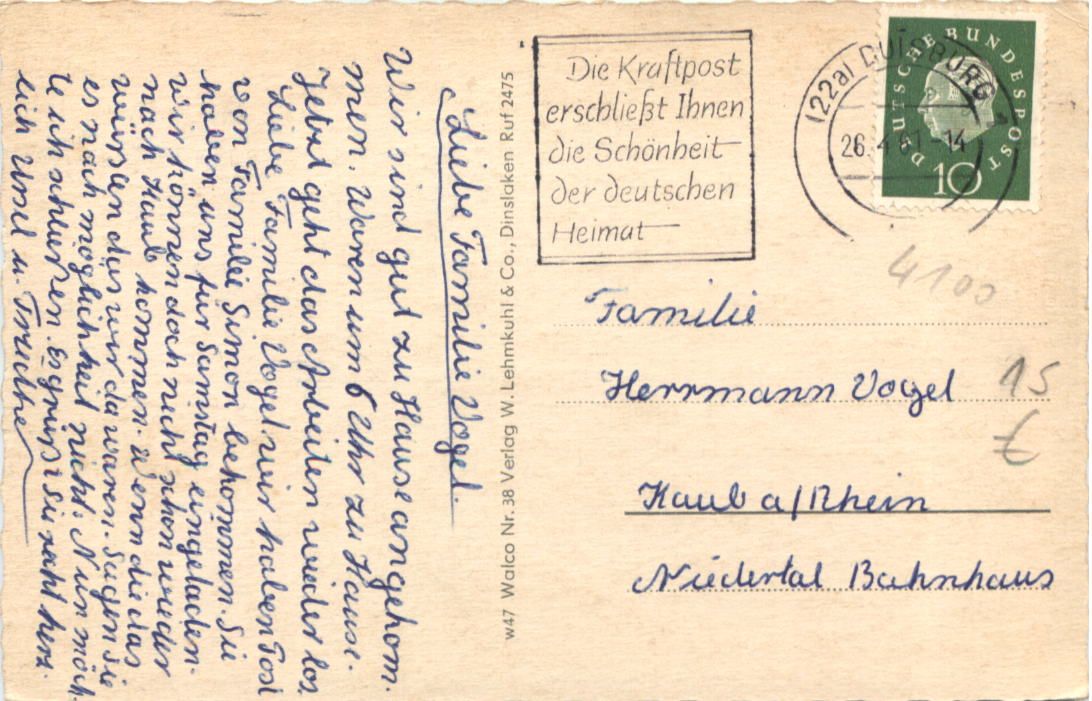 Liebe Familie Vogel.
Wir sind gut zu Hause angekom.
men. Waren um 6 Uhr zu Hause.
Jetzt geht das Arbeiten wieder los
Liebe Familie Vogel wir haben Post
von Familie Simon bekommen. Sie
haben uns für Samstag eingeladen.
Wir können doch nicht schon wieder
nach Kaub kommen. Wenn die das
wüsten das wir da waren. Sagen Sie
es nach möglichkeit nicht. Nun möch
te ich schließen. Es grüßt Sie recht herz
lich Ursel u.
W47 Walco Nr. 38 Verlag W. Lehmkuhl & Co., Dinslaken Ruf 2475
Die Kraftpost
erschließt Ihnen
die Schönheit
der deutschen
Heimat
(22a) DUISBURG
26.4.61-14
DEUTSCHE BUNDESPOST
10
4100
15
€
Familie
Herrmann Vogel
Kaub a/Rhein
Niedertal Bahnhaus